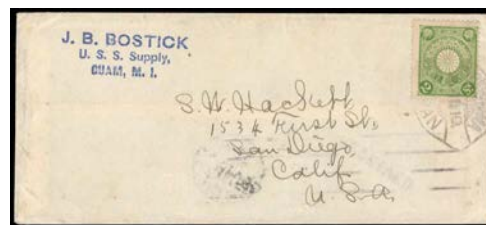 J. B. BOSTICK
U. S. S. Supply,
GUAM, M. I.
S. W. Hackett
1534 First St.
San Diego,
Calif
U.S.A.